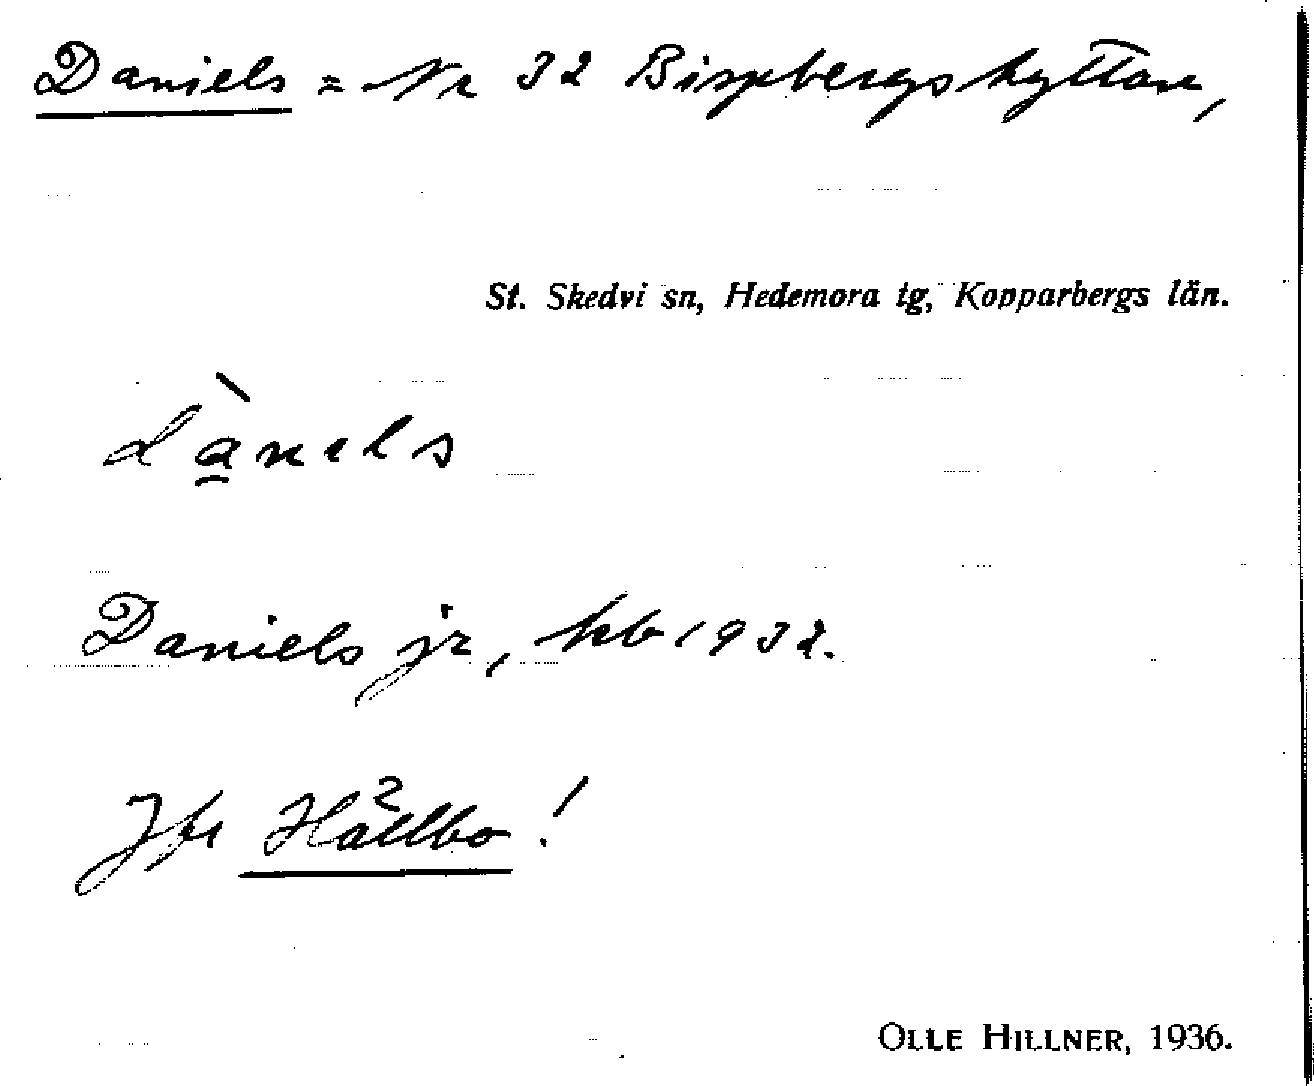 Daniels = Nr 32 Bispbergshyttan,
St. Skedvi sn, Hedemora tg, Kopparbergs län.
dà̱nels
Daniels jr, kb 1932.
Jfr Hällbo!
OLLE HILLNER, 1936.